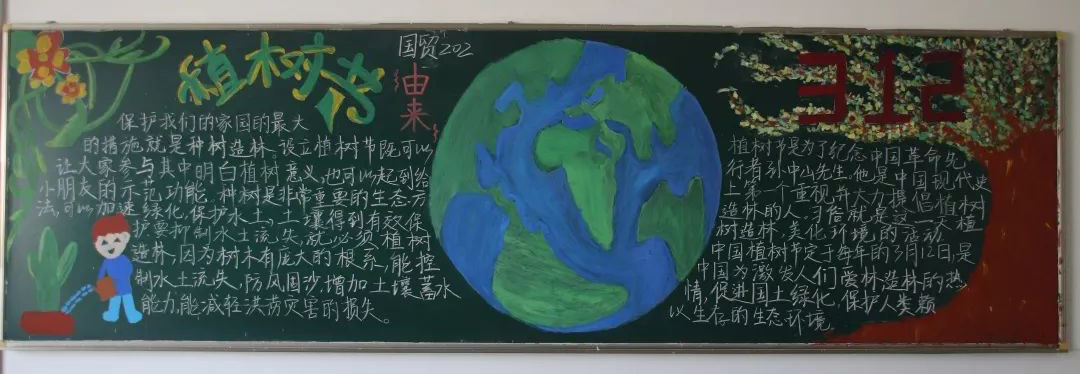 植树节
国贸202
由来
保护我们的家国的最大
的措施就是种树造林。设立植树节既可以
让大家参与其中明白植树意义,也可以起到给
小朋友的示范功能。种树是非常重要的生态方
法,可以加速绿化,保护水土,土壤得到有效保
护要抑制水土流失,就必须植树
造林,因为树木有庞大的根系,能控
制水土流失,防风固沙,增加土壤蓄水
能力,能减轻洪涝灾害的损失。
312
植树节是为了纪念中国革命先
行者孙中山先生,他是中国现代史
上第一个重视并大力提倡植树
造林的人。习俗就是这一天植
树造林,美化环境的活动
中国植树节定于每年的3月12日,是
中国为激发人们爱林造林的热
情,促进国土绿化,保护人类赖
以生存的生态环境